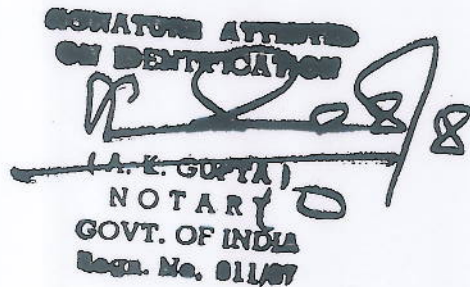 SIGNATURE ATTESTED
ON IDENTIFICATION
(A. K. GUPTA)
NOTARY
GOVT. OF INDIA
Regn. No. 011/97